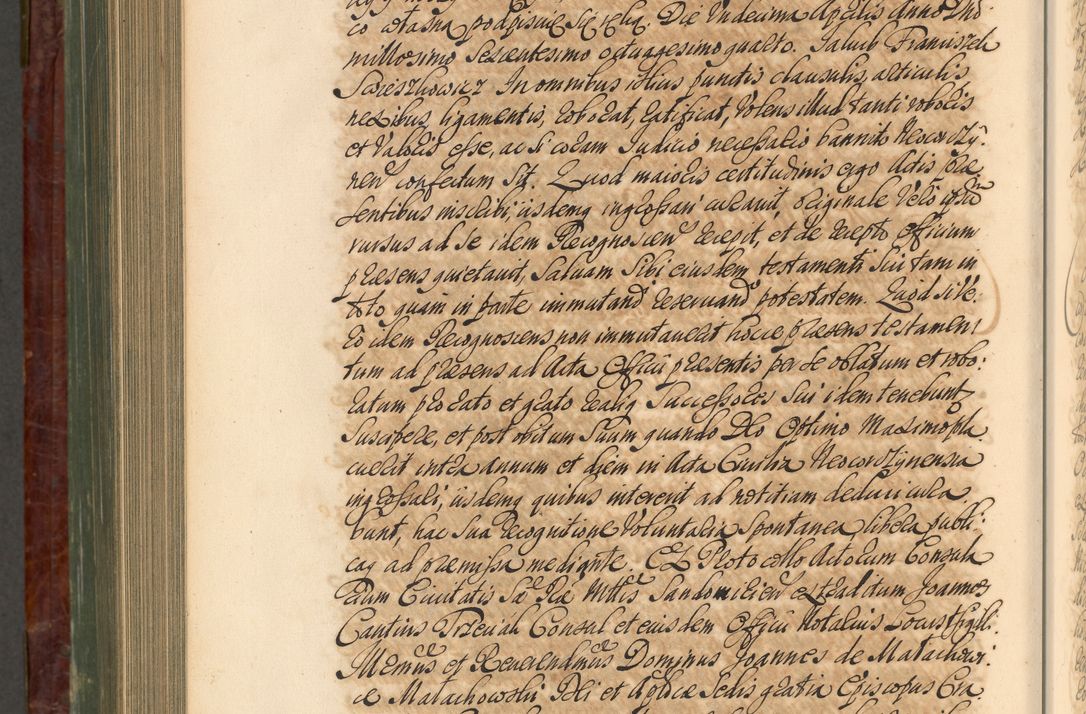 co własną podpisuię się ręką. Die Undecima Aprilis Anno Dno
millesimo sexcentesimo octuagesimo quarto. Jakub Franciszek
Swieszkowicz In omnibus illius punctis clausulis, articulis
nexibus, ligamentis, roborat, ratificat, Volens illud tanti roboris
et Valoris esse, ac si coram Judicio necessario bannito Neocorczy:
nen confectum sit. Quod maioris certitudinis ergo Actis præ
sentibus inscribi, iisdemq ingrossari curavit, originale Vero ipsum
rursus ad se idem Recognoscen recepit, et de recepto officium
præsens quietavit, Salvam sibi eiusdem testamenti sui tam in
toto quam in parte immutand reservand potestatem. Quod si Ve:
ro idem Recognoscens non immutaverit hocce præsens testamen
tum ad præsens ad Acta Officii præsentis per se oblatum et robo:
ratum pro rato et grato realiq Successores sui idem tenebunt
suscipere, et post obitum suum quando Deo Optimo Maximo pla
cuerit intra annum et diem in Acta Civilia Neocorczynensia
ingrossari, iisdemq quibus intererit ad notitiam deduci cura
bunt, hac sua recognitione Voluntaria, Spontanea, libera, publi:
caq ad præmissa mediante. Ex Protocollo Actorum Consula
rium Civitatis Sæ Ræ Mttis Sandomirien extraditum Joannes
Cantius Trzeciak Consul et eiusdem Officii Notarius Locus Sigilli.
Illmus et Reverendmus Dominus Joannes de Małachowi:
ce Małachowski Dei et Aplicæ Sedis gratia Episcopus Cra